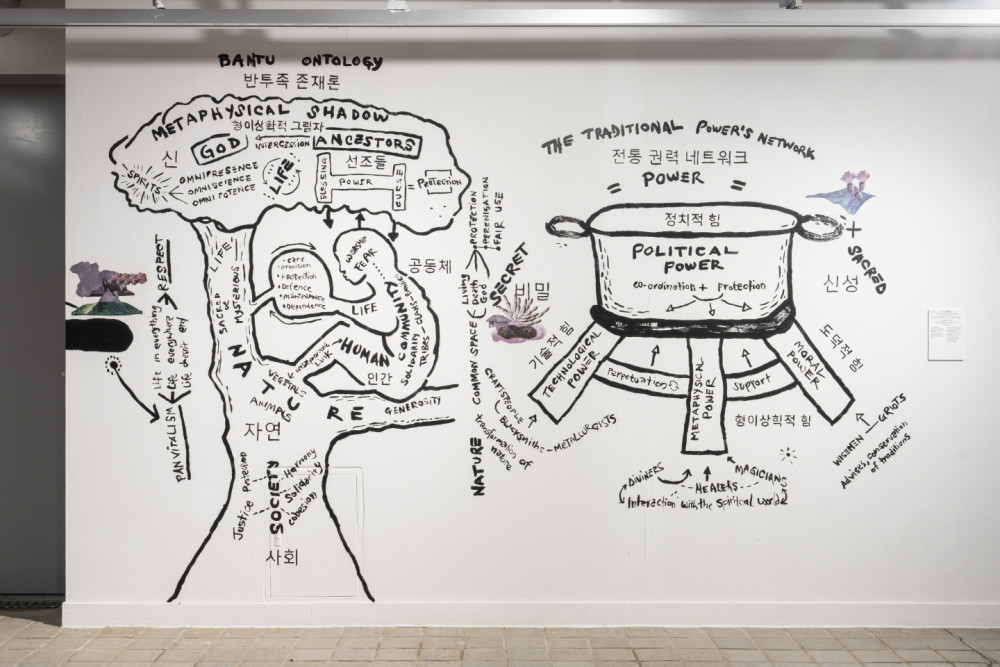 BANTU ONTOLOGY
반투족 존재론
METAPHYSICAL SHADOW
형이상학적 그림자
신
GOD
INTERCESSION
ANCESTORS
선조들
SPIRITS
OMNIPRESENCE
OMNISCIENCE
OMNIPOTENCE
LIFE
BLESSING
POWER
CURSE
= PROTECTION
LIFE
SACRED &
MYSTERIOUS
• care
• Protection
• Defence
• MAINTENANCE
• DEPENDENCE
WORSHIP
FEAR
LIFE
공동체
COMMUNITY
HUMAN
인간
link
VEGETALS
ANIMALS
NATURE
자연
GENEROSITY
RESPECT
Life in everything
Life everywhere
PANVITALISM
SOCIETY
Harmony
Solidarity
cohesion
Justice Protection
사회
NATURE COMMON SPACE
Living
Death
God
• PROTECTION
• FAIR USE
SECRET
비밀
THE TRADITIONAL POWER'S NETWORK
전통 권력 네트워크
= POWER =
정치적 힘
POLITICAL POWER
co-ordination + protection
+ SACRED
신성
기술적 힘
TECHNOLOGICAL POWER
Perpetuation
METAPHYSICAL POWER
형이학적 힘
Support
MORAL POWER
도덕적 힘
CRAFTSPEOPLE
Blacksmiths
METALLURGISTS
transformation of nature
DIVINERS
HEALERS
MAGICIANS
Interaction with the Spiritual world
WISEMEN
GRIOTS
Advisers, conservation
of traditions